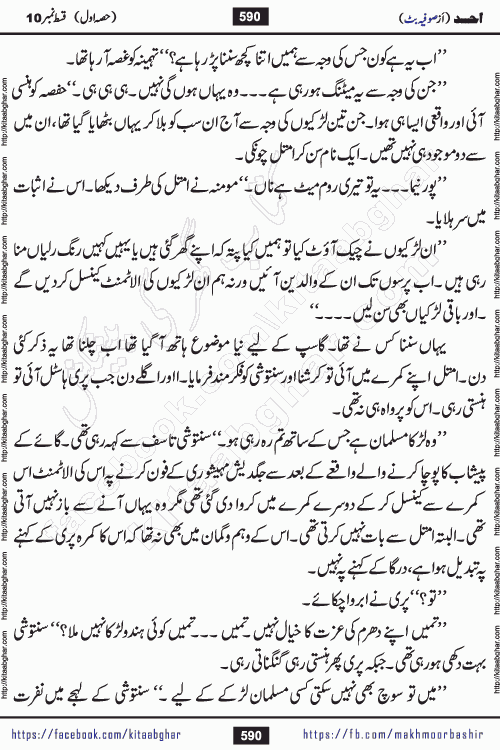 احمد (از صوفیہ بٹ) 590 (حصہ اول) قسط نمبر 10
’’اب یہ ہے کون جس کی وجہ سے ہمیں اتنا کچھ سننا پڑ رہا ہے؟‘‘ تہمینہ کو غصہ آ رہا تھا۔
’’جن کی وجہ سے یہ میٹنگ ہو رہی ہے۔۔۔ وہ یہاں ہوں گی نہیں۔ ہی ہی ہی۔‘‘ حفصہ کو ہنسی
آئی اور واقعی ایسا ہی ہوا۔ جن تین لڑکیوں کی وجہ سے آج ان سب کو بلا کر یہاں بٹھایا گیا تھا، ان میں
سے دو موجود ہی نہیں تھیں۔ ایک نام سن کر امتل چونکی۔
’’پورنیما۔۔۔ یہ تو تیری روم میٹ ہے ناں۔‘‘ مومنہ نے امتل کی طرف دیکھا۔ اس نے اثبات
میں سر ہلایا۔
’’ان لڑکیوں نے چیک آؤٹ کیا تو ہمیں کیا پتہ کہ اپنے گھر گئی ہیں یا یہیں کہیں رنگ رلیاں منا
رہی ہیں۔ اب پرسوں تک ان کے والدین آئیں ورنہ ہم ان لڑکیوں کی الاٹمنٹ کینسل کر دیں گے
۔ اور باقی لڑکیاں بھی سن لیں۔۔۔۔‘‘
یہاں سننا کس نے تھا۔ گاسپ کے لیے نیا موضوع ہاتھ آ گیا تھا اب چلنا تھا یہ ذکر کئی
دن۔ امتل اپنے کمرے میں آئی تو کرشنا اور سنتوشی کو فکرمند فرمایا۔ ااور اگلے دن جب پری ہاسٹل آئی تو
ہنستی رہی۔ اس کو پرواہ ہی نہ تھی۔
’’وہ لڑکا مسلمان ہے جس کے ساتھ تم رہ رہی ہو۔‘‘ سنتوشی تاسف سے کہہ رہی تھی۔ گائے کے
پیشاب کا پوچا کرنے والے واقعے کے بعد سے جگدیش مہیشوری کے فون کرنے پہ اس کی الاٹمنٹ اس
کمرے سے کینسل کر کے دوسرے کمرے میں کروا دی گئی تھی مگر وہ یہاں آنے سے باز نہیں آتی
تھی۔ البتہ امتل سے بات نہیں کرتی تھی۔ اس کے وہم و گمان میں بھی نہ تھا کہ اس کا کمرہ پری کے کہنے
پہ تبدیل ہوا ہے، درگا کے کہنے پہ نہیں۔
’’تو؟‘‘ پری نے ابرو اچکائے۔
’’تمہیں اپنے دھرم کی عزت کا خیال نہیں۔ تمہیں۔۔۔ تمہیں کوئی ہندو لڑکا نہیں ملا؟‘‘ سنتوشی
بہت دکھی ہو رہی تھی۔ جبکہ پری پھر ہنستی رہی گنگناتی رہی۔
’’میں تو سوچ بھی نہیں سکتی کسی مسلمان لڑکے کے لیے۔‘‘ سنتوشی کے لہجے میں نفرت
https://facebook.com/kitaabghar 590 https://fb.com/makhmoorbashir
http://kitaabghar.com